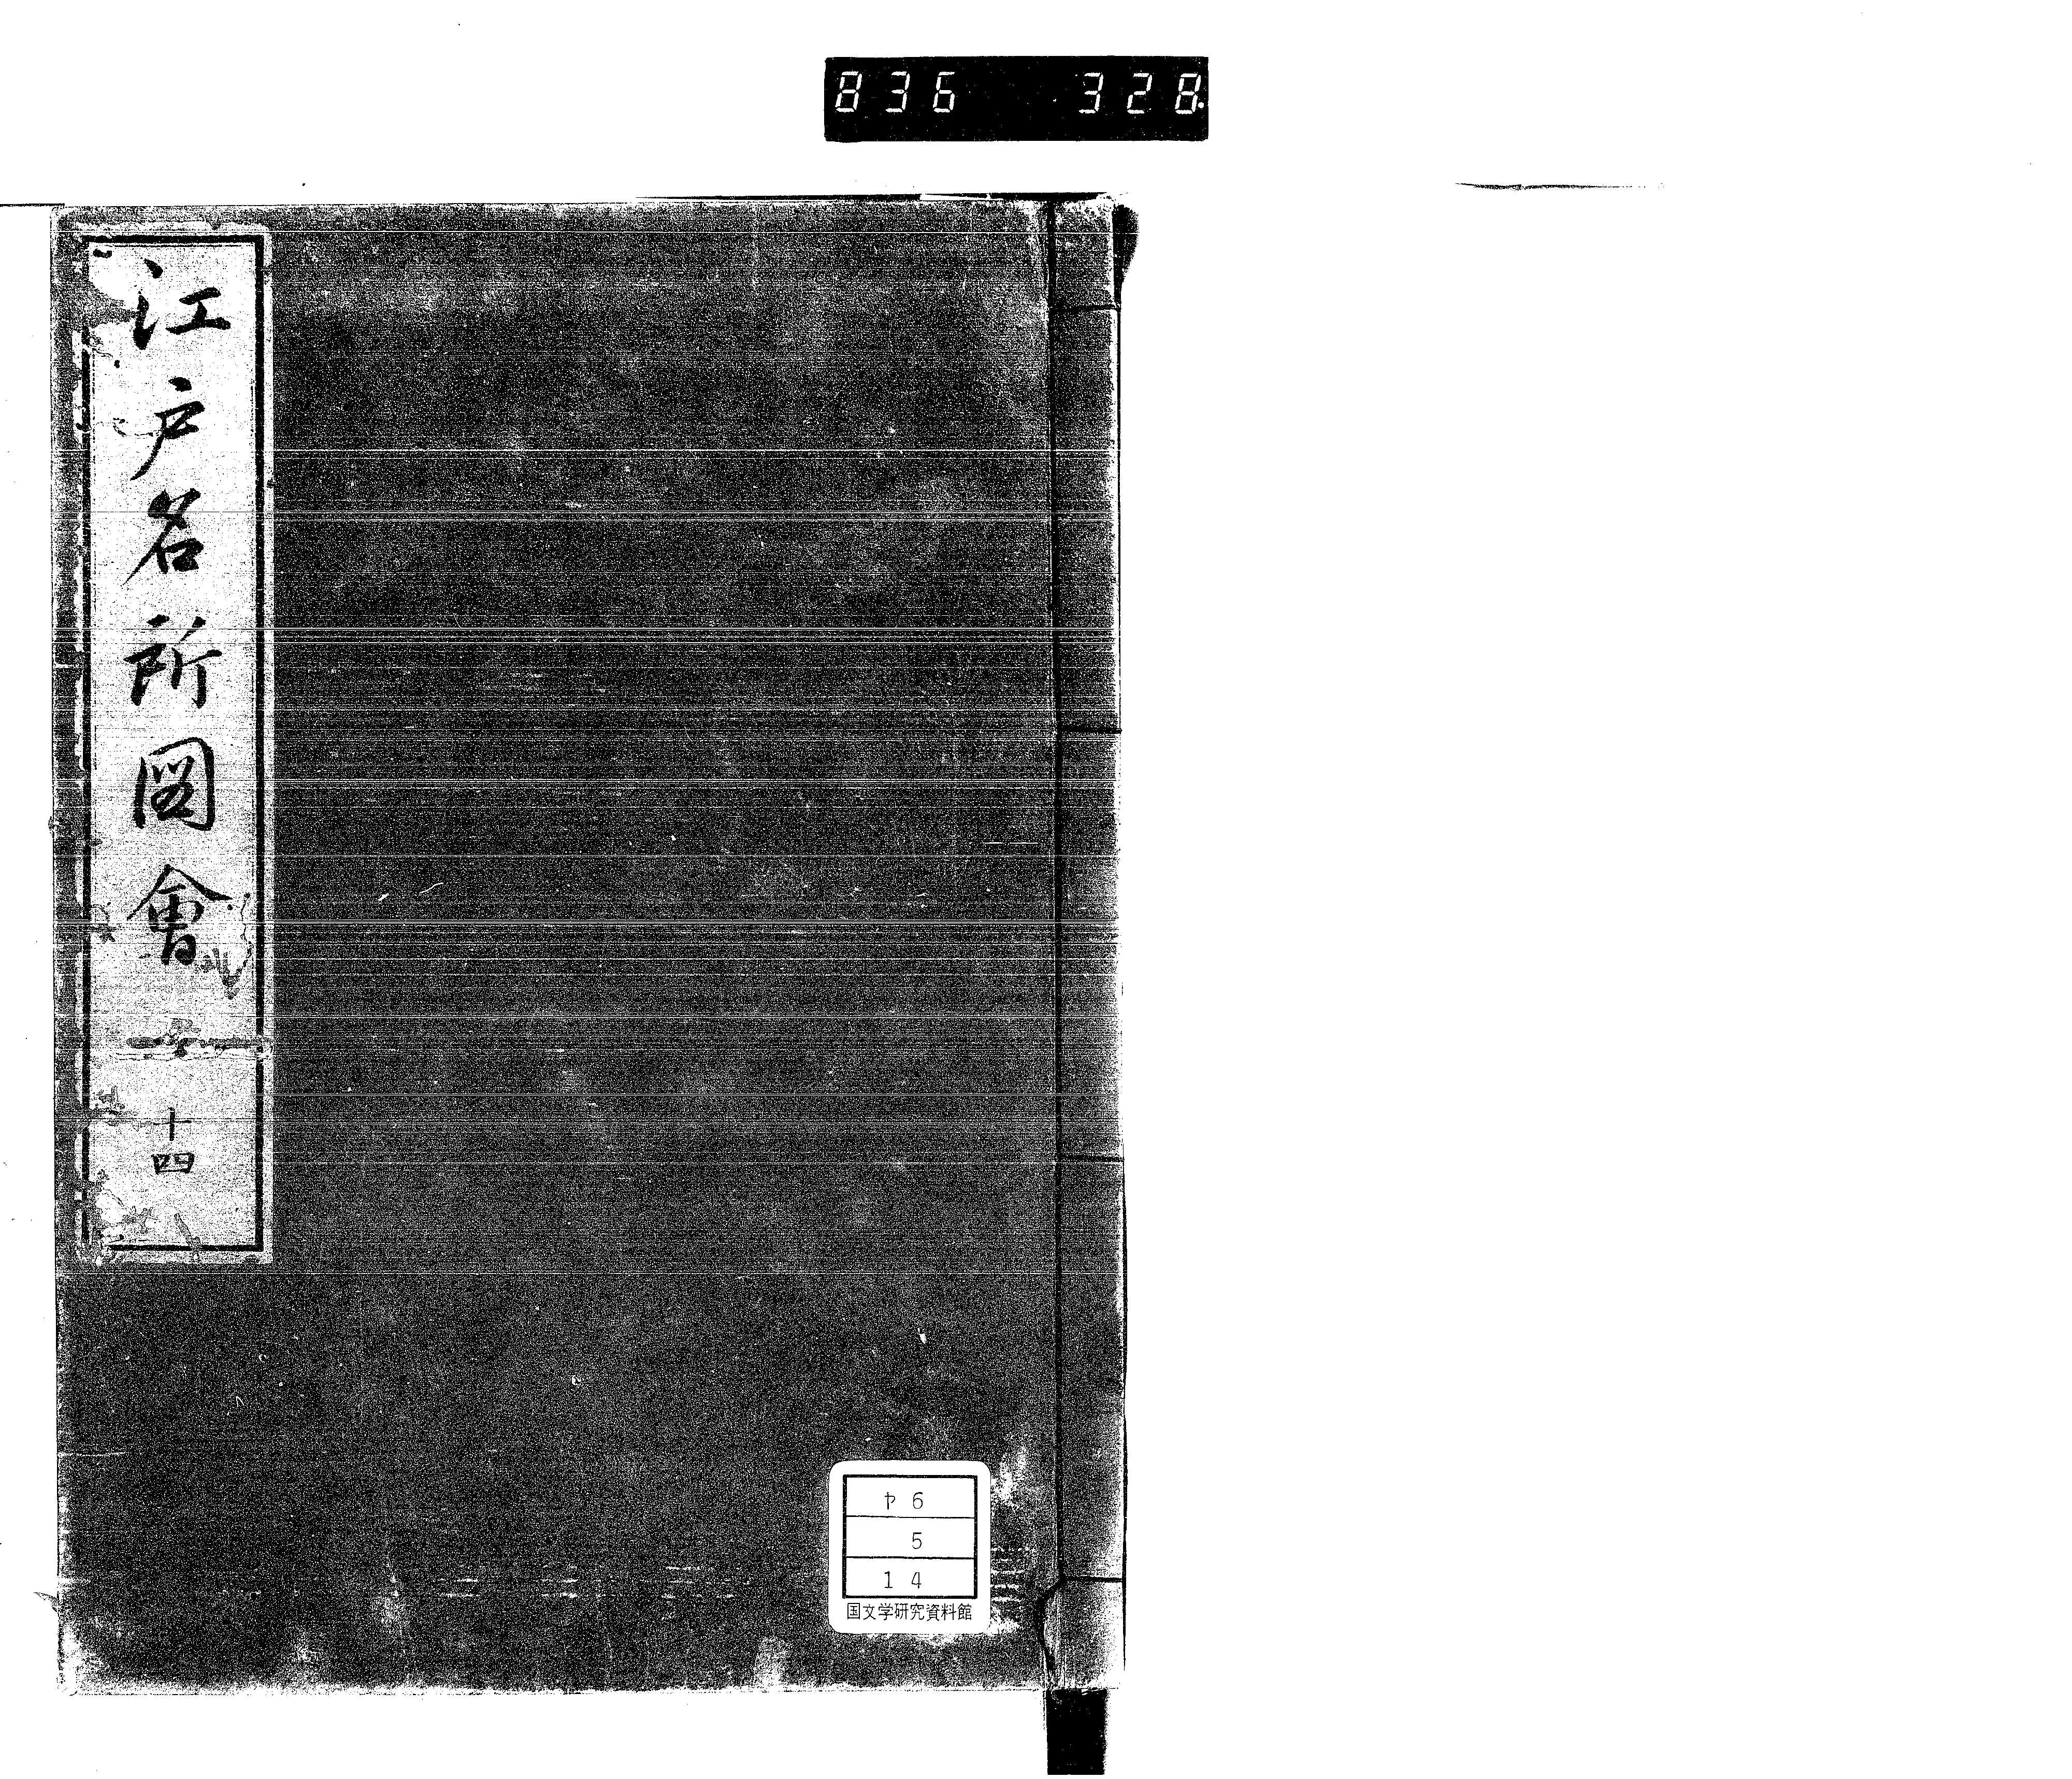 836 328
江戸名所圖會
十四
ヤ6
5
14
国文学研究資料館